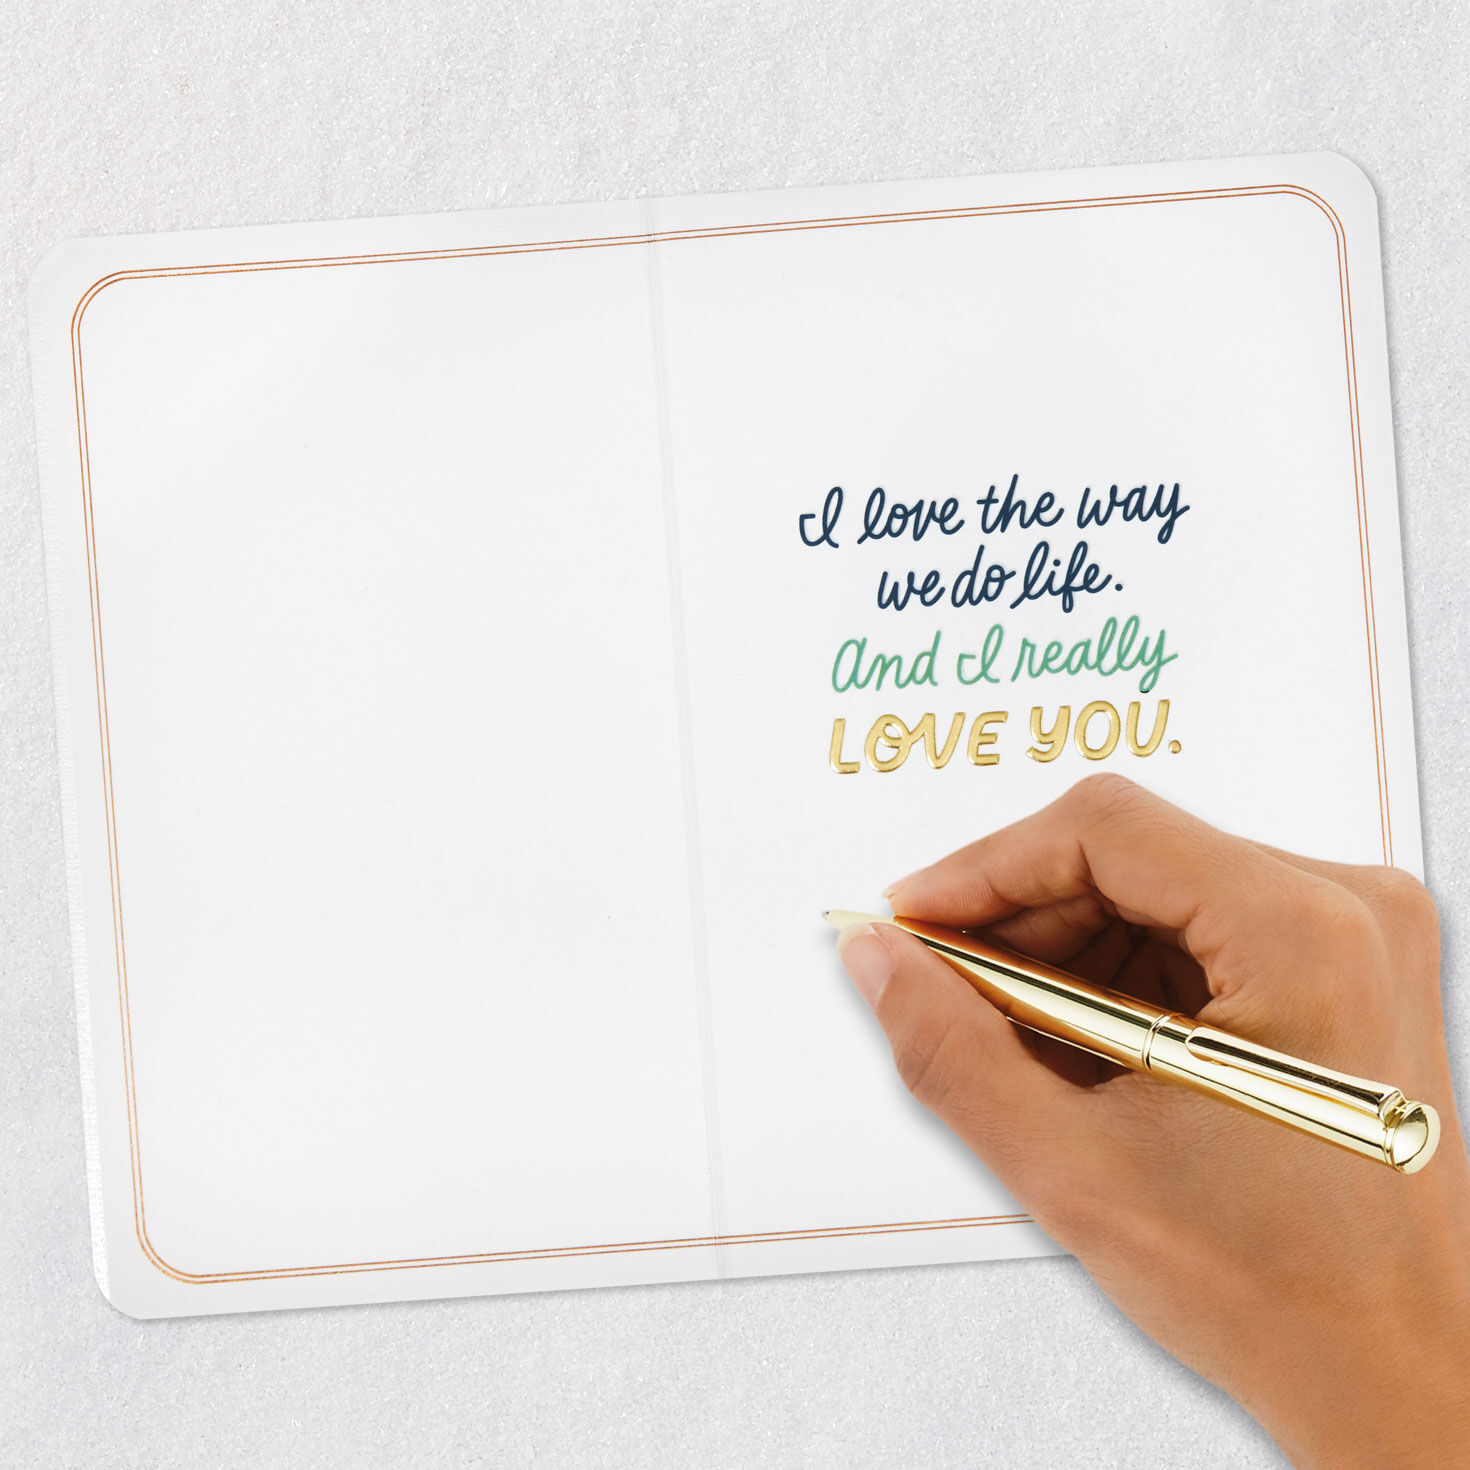 I love the way
we do life.
And I really
LOVE YOU.